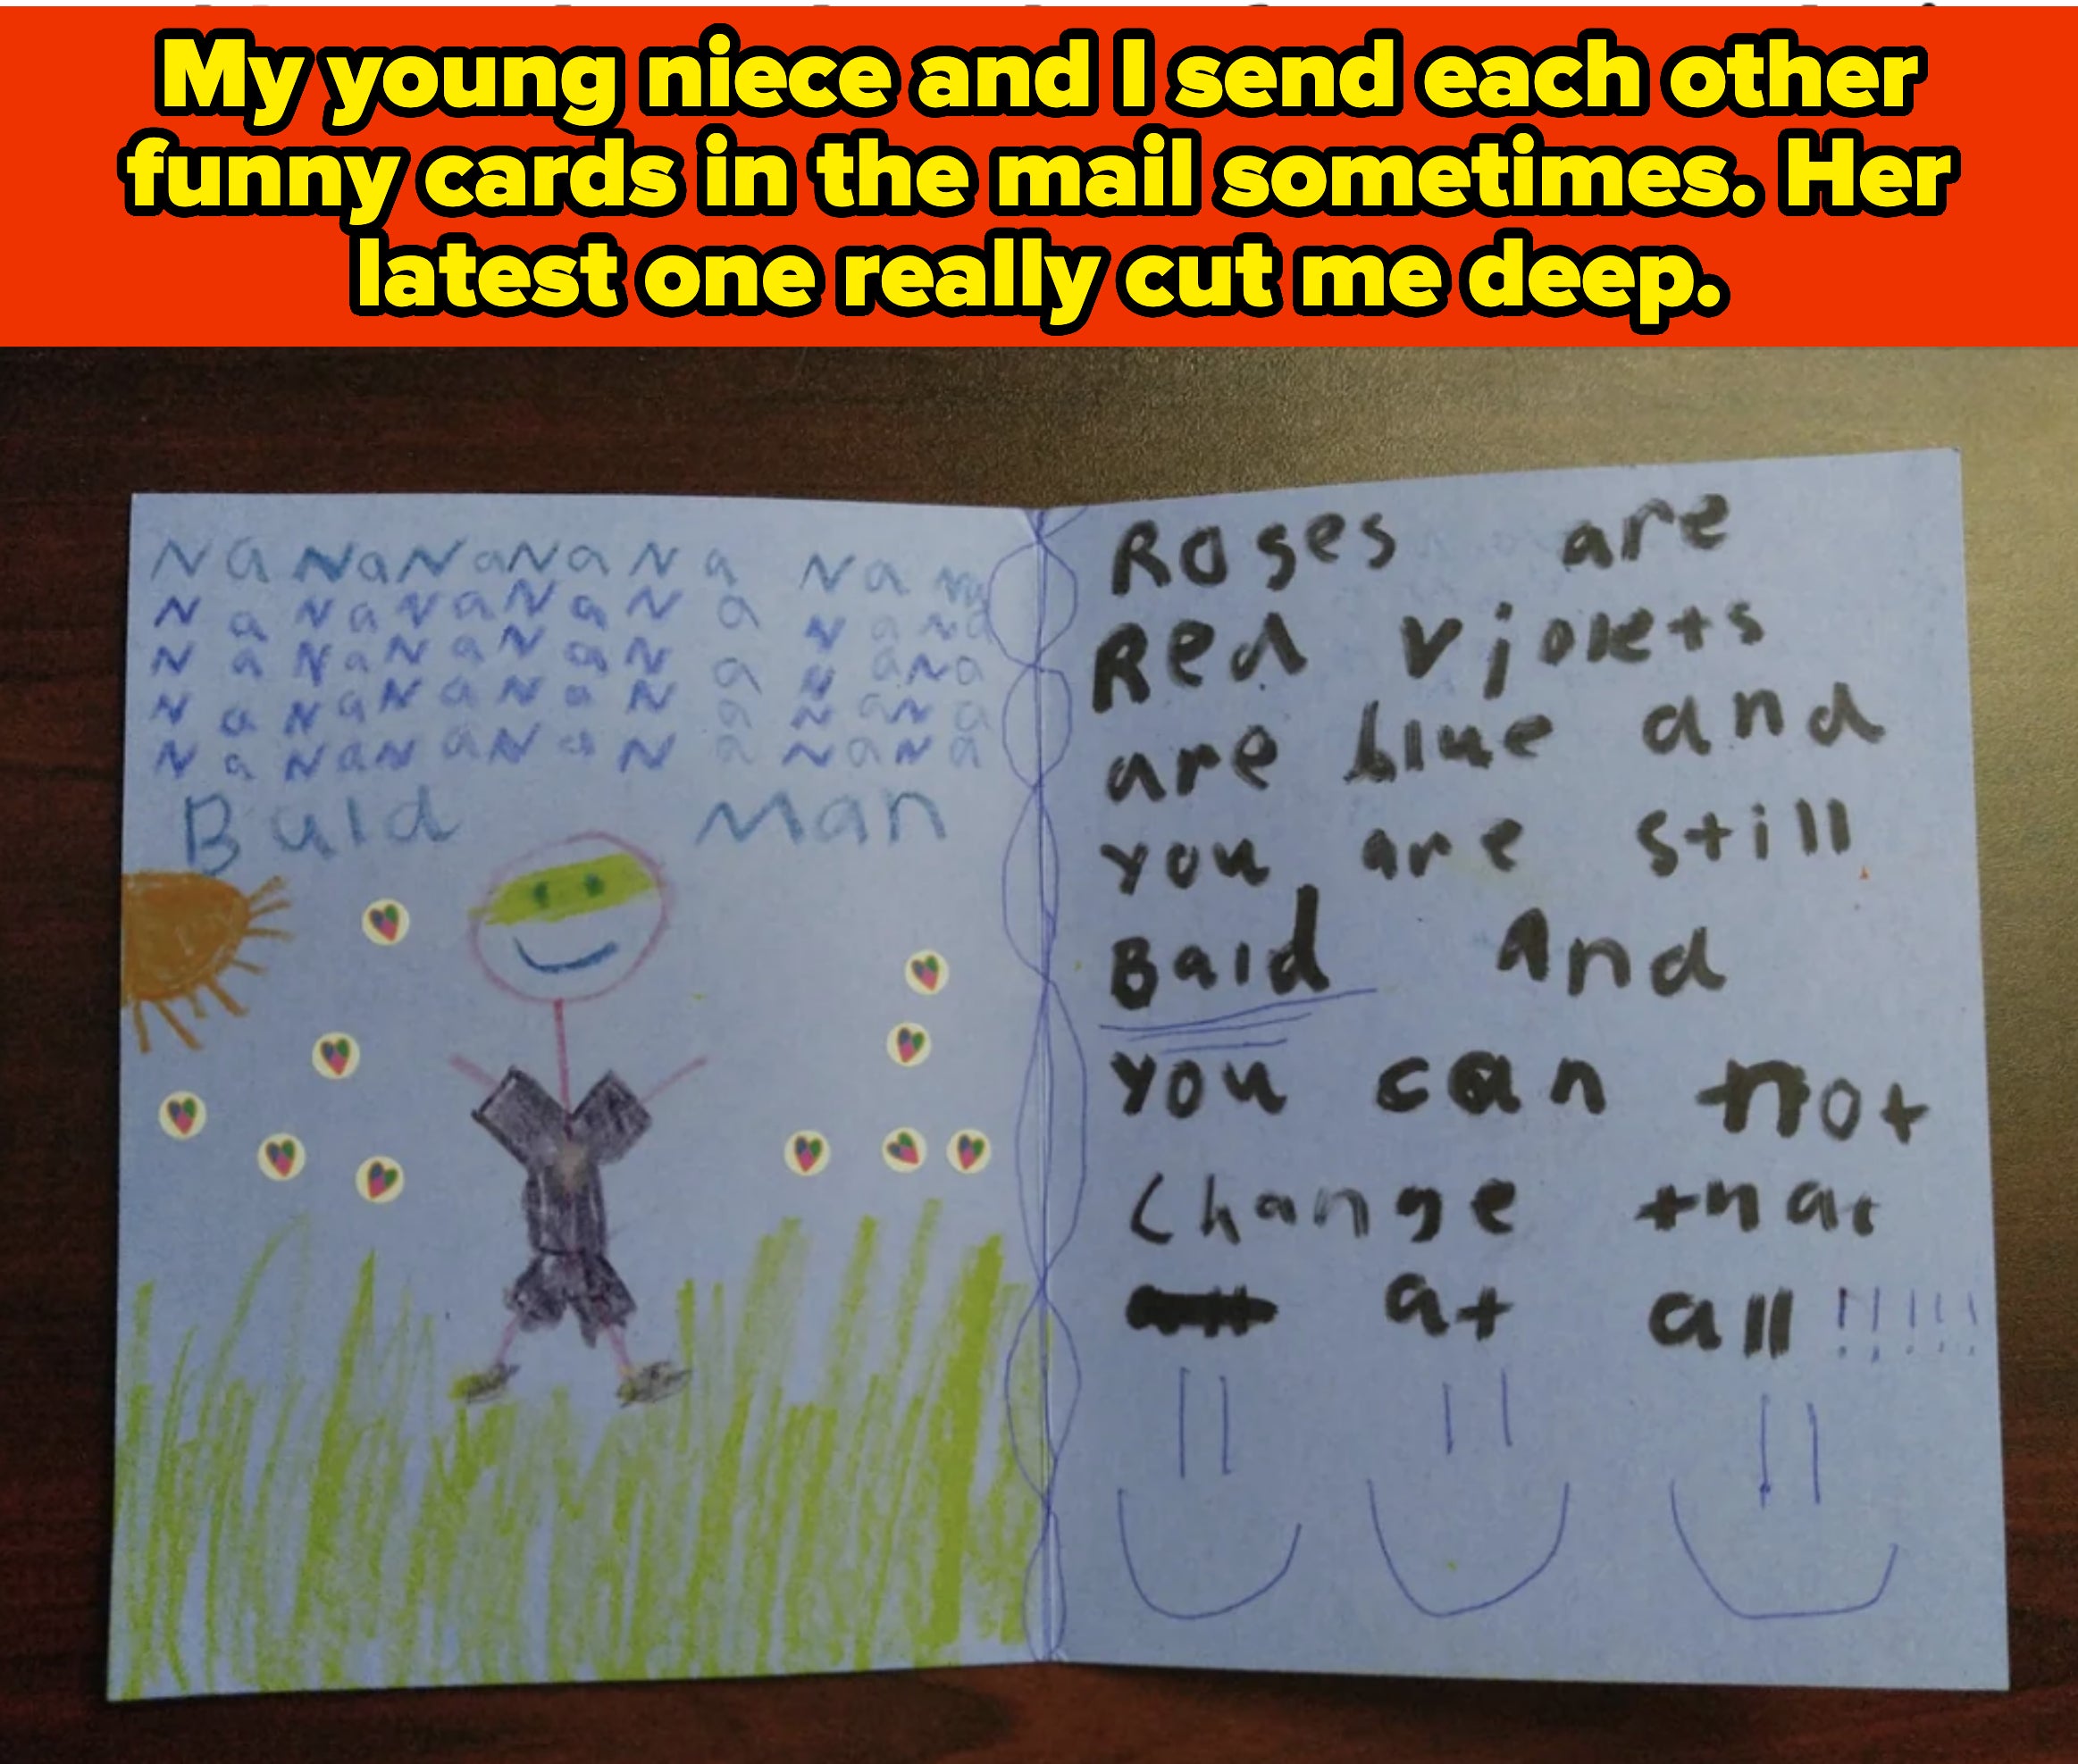 My young niece and I send each other
funny cards in the mail sometimes. Her
latest one really cut me deep.
Na Na Na Na Na Na
Na Na Na Na Na Na Na
Na Na Na Na Na Na Na
Na Na Na Na Na Na Na
Na Na Na Na Na Na Na
Bald Man
Roses are
Red violets
are blue and
you are still
Bald And
you can not
Change that
at all !!!!!